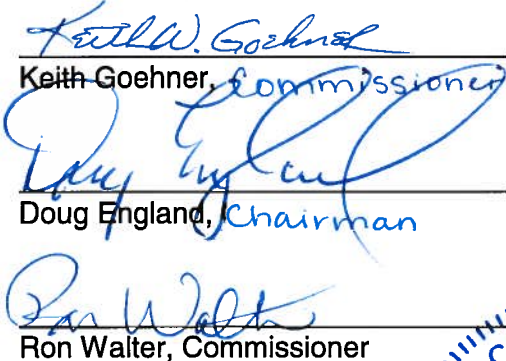 Keith W. Goehner
Keith Goehner, Commissioner
Doug England
Doug England, Chairman
Ron Walter
Ron Walter, Commissioner
C